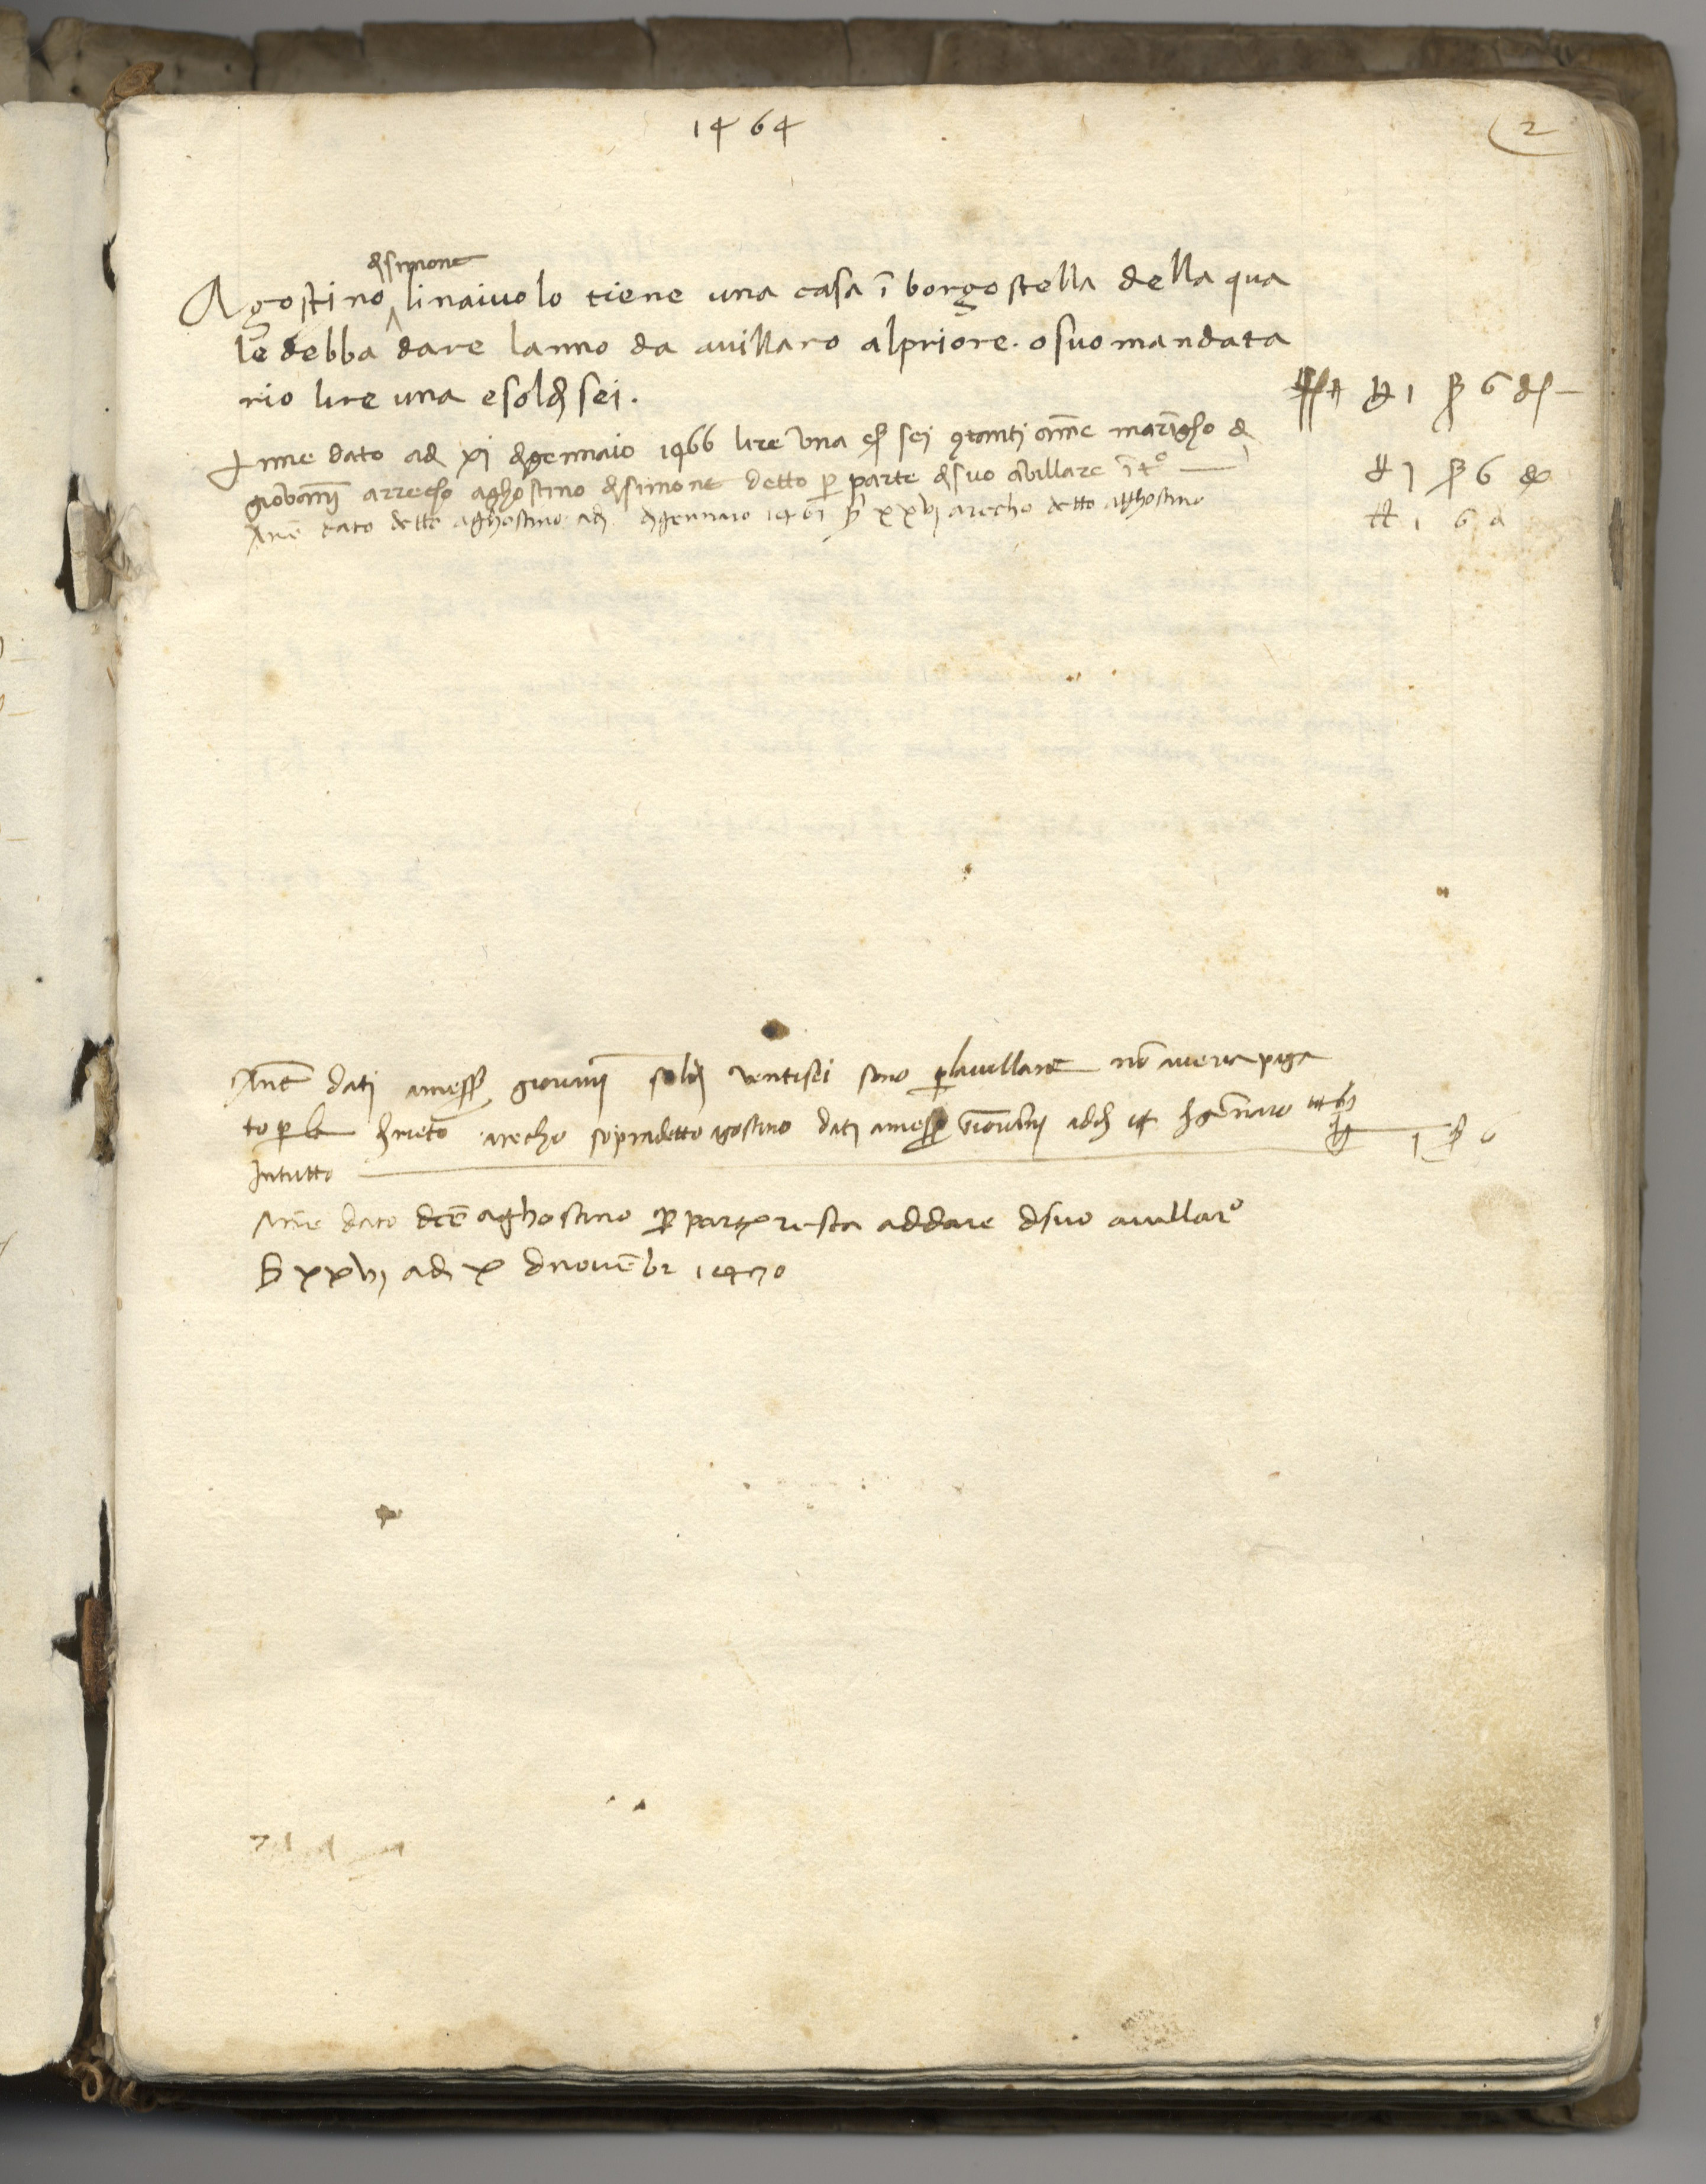 1464
2
di simone
Agostino linaiuolo tiene una casa ī borgo stella della qua
le debba dare lanno da avillaro al priore. o suo mandata
rio lire una e soldi sei. ₶ 1 ß 6 d —
Anne dato adi xi di gennaio 1466 lire una e ß sei 9tanti anne
giovannj arrecho aghostino di simone detto p parte di suo abillare ī 4° — ₶ 1 ß 6 d
Anē dato detto aghostino adi di gennaio 146 ß xxvj arecho detto aghostino ₶ 1 6 d
Anē datj a mess giovannj soldj ventisei sono p lavillare nō aveva paga
to p arecho sopradetto agostino datj a mess giovannj adi di gēnaro
In tutto ₶ 1 ß 6
Anne dato dcō aghostino p parte resta addare di suo avillar°
ß xxvj adi x di novēbr 1470